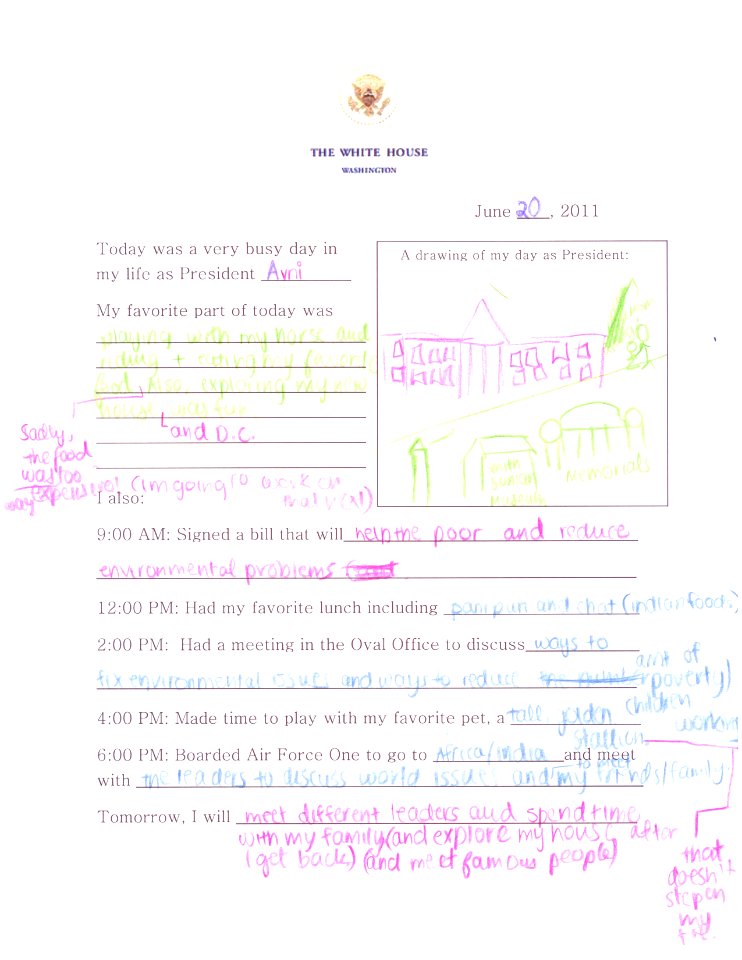 THE WHITE HOUSE
WASHINGTON
June 20, 2011
Today was a very busy day in
my life as President Avni
My favorite part of today was
playing with my horse and
riding + eating my favorite
food. Also, exploring my new
house was fun
and D.C.
Sadly,
the food
was too
way expensive! (im going to work on
that v(x!)
A drawing of my day as President:
Museum
Memorials
I also:
9:00 AM: Signed a bill that will help the poor and reduce
environmental problems
12:00 PM: Had my favorite lunch including pani puri and chat (indian food.)
2:00 PM: Had a meeting in the Oval Office to discuss ways to
fix environmental issues and ways to reduce amt of
poverty)
children
working
4:00 PM: Made time to play with my favorite pet, a tall, golden
stallion
that
doesn't
step on
my
6:00 PM: Boarded Air Force One to go to Africa/india and meet
to meet
with the leaders to discuss world issues and my friends/family
Tomorrow, I will meet different leaders and spend time
with my family (and explore my house after
I get back) (and meet famous people)